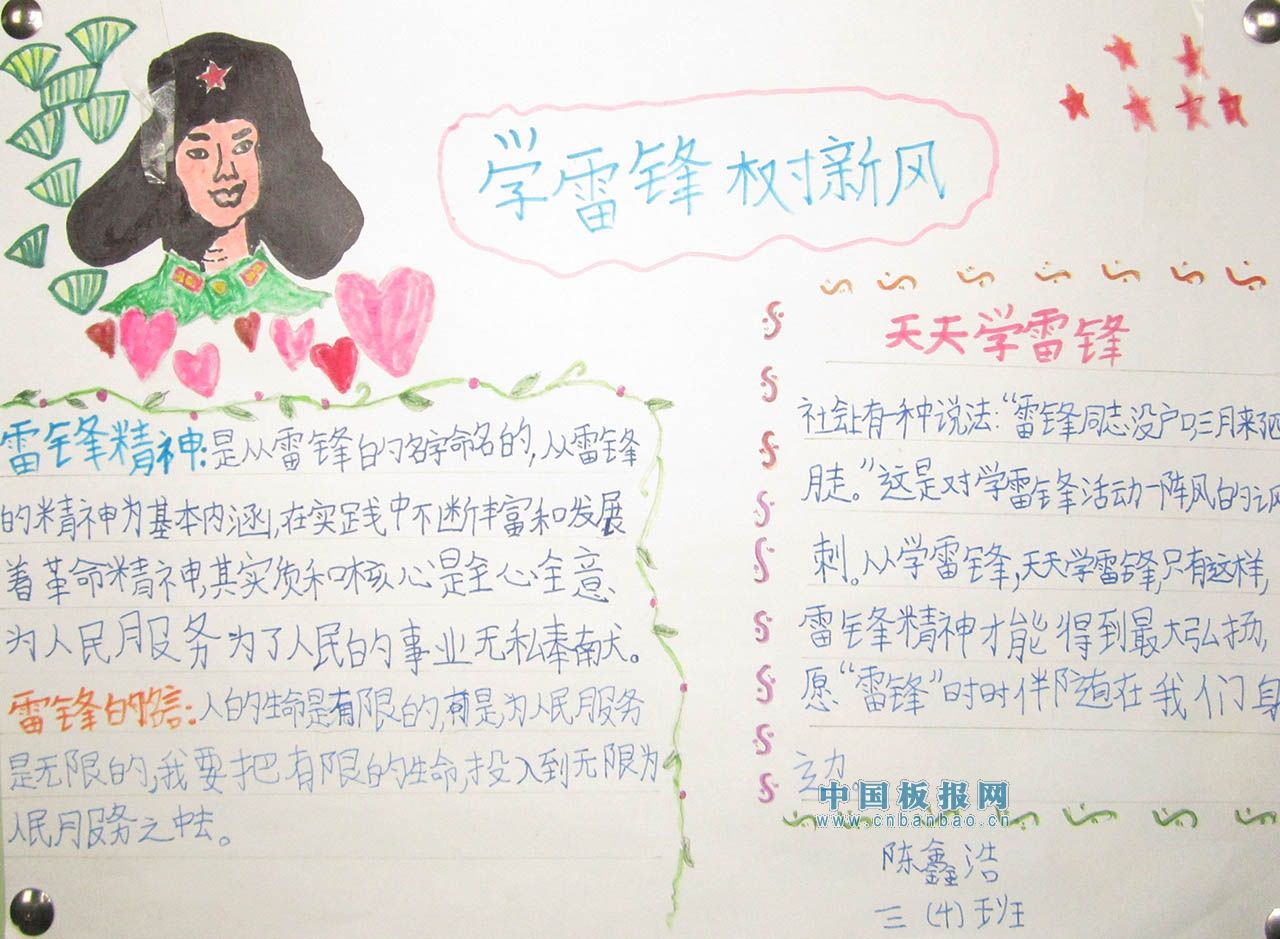 学雷锋 树新风
雷锋精神:是从雷锋的名字命名的,从雷锋
的精神为基本内涵,在实践中不断丰富和发展
着革命精神,其实质和核心是全心全意
为人民服务为了人民的事业无私奉献。
雷锋的信:人的生命是有限的,可是,为人民服务
是无限的,我要把有限的生命,投入到无限为
人民服务之中去。
天天学雷锋
社会上有一种说法:“雷锋同志没户口,三月来四
月走。”这是对学雷锋活动一阵风的讽
刺。人人学雷锋,天天学雷锋,只有这样,
雷锋精神才能得到最大弘扬,
愿“雷锋”时时伴随在我们身
边。
中国板报网
www.cnbanbao.cn
陈鑫浩
三(4)班